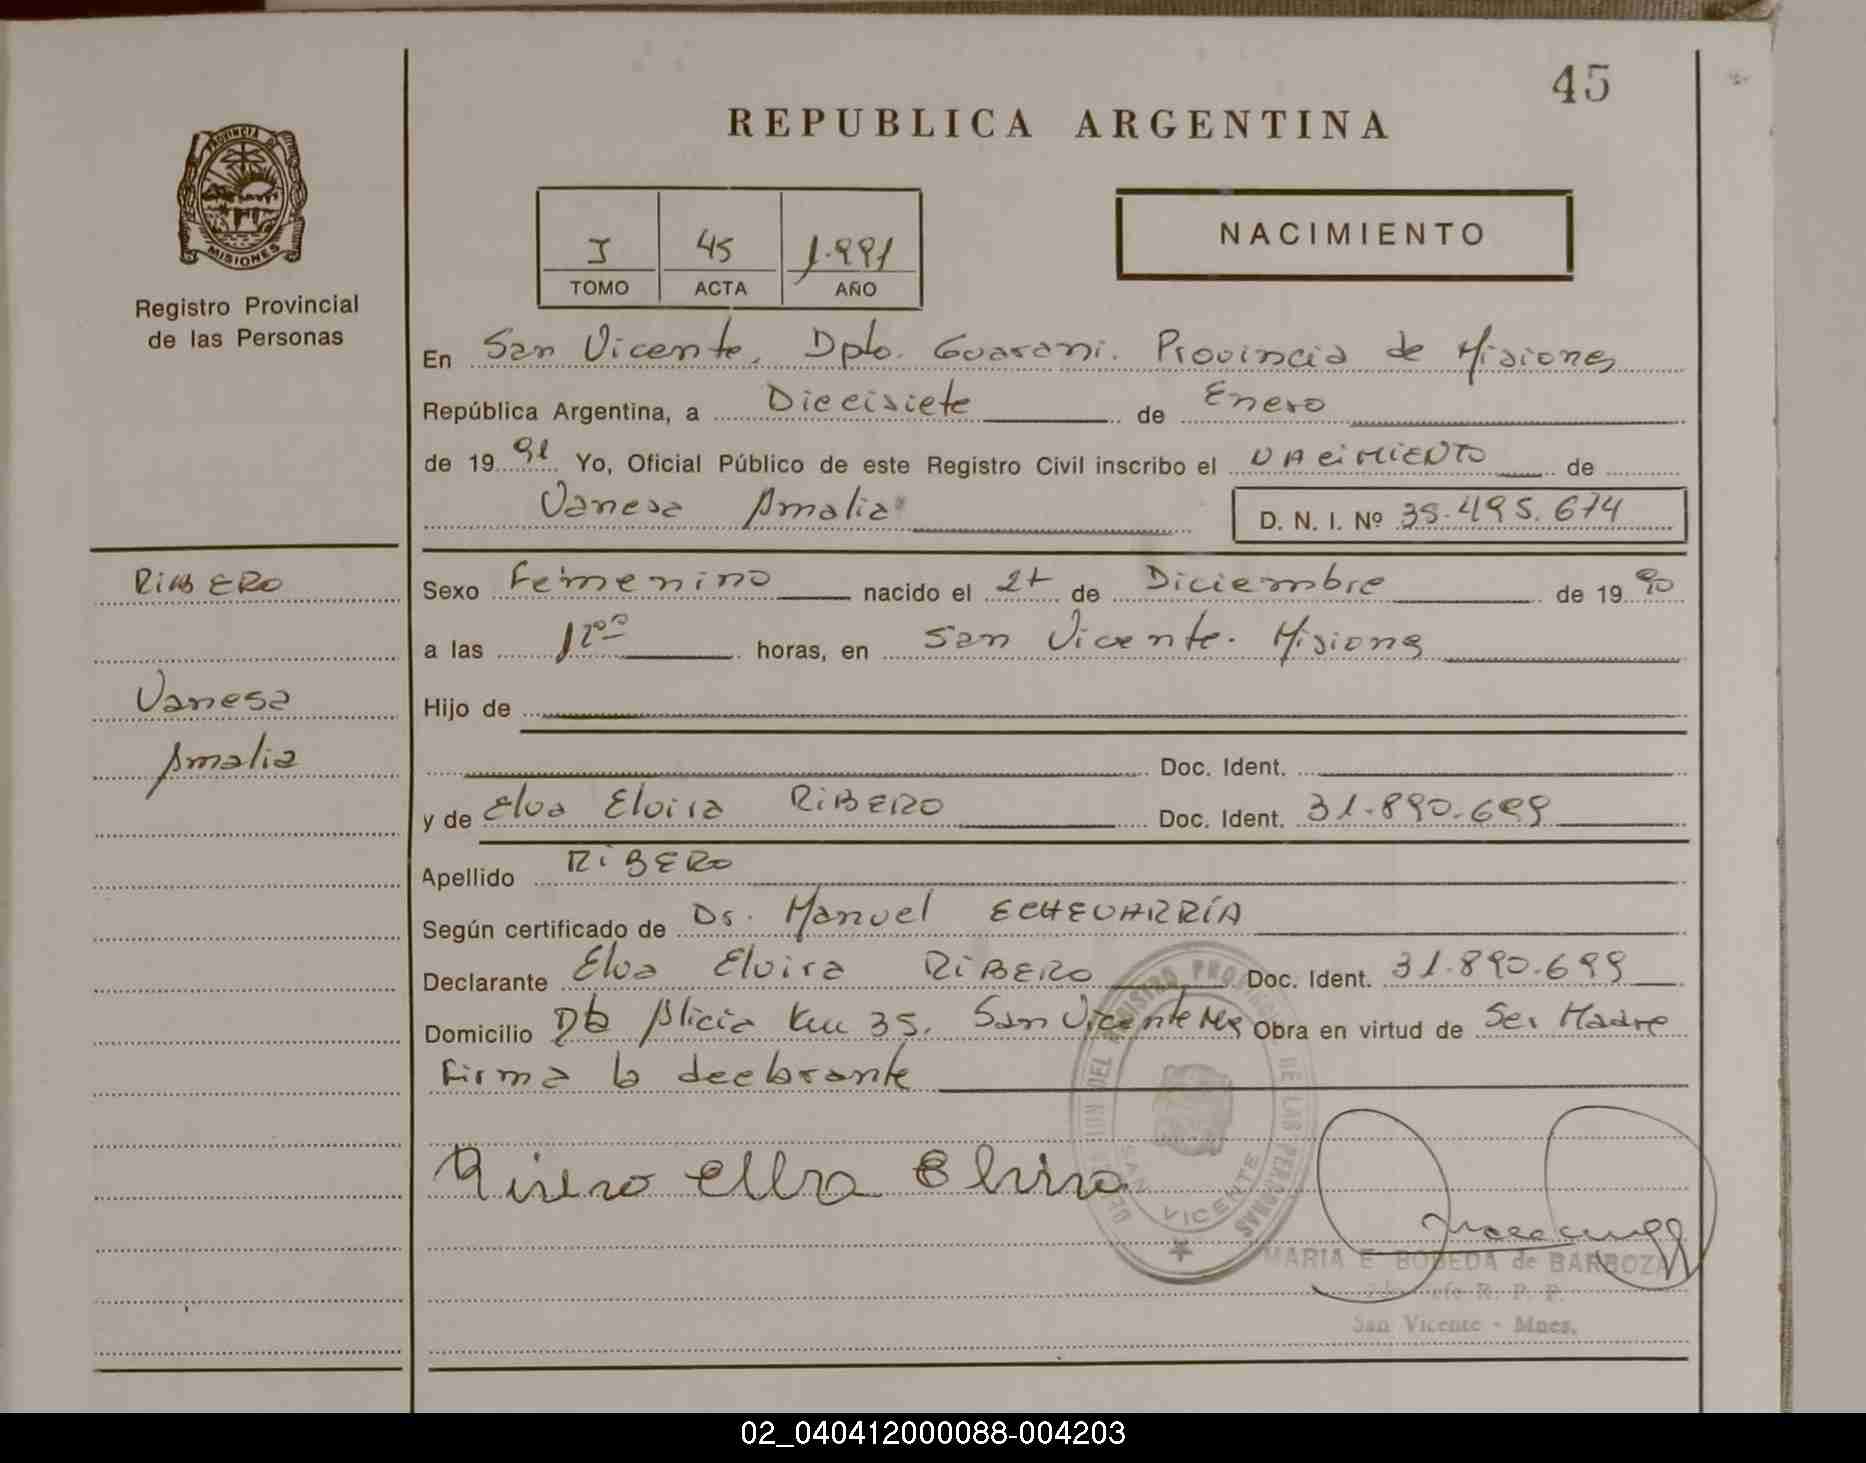 45
REPUBLICA ARGENTINA
PROVINCIA DE
MISIONES
Registro Provincial
de las Personas
I 45 1.991
TOMO ACTA AÑO
NACIMIENTO
En San Vicente, Dpto. Guarani. Provincia de Misiones
República Argentina, a Diecisiete de Enero
de 1991 Yo, Oficial Público de este Registro Civil inscribo el NACIMIENTO de
Vanesa Amalia
D. N. I. Nº 35.495.674
RIBERO
Vanesa
Amalia
Sexo Femenino nacido el de Diciembre de 1990
a las 12⁰⁰ horas, en San Vicente. Misiones
Hijo de
Doc. Ident.
y de Elva Elvira RIBERO Doc. Ident. 31.890.699
Apellido RIBERO
Según certificado de Dr. Manuel ECHEVARRÍA
Declarante Elva Elvira RIBERO Doc. Ident. 31.890.699
Domicilio Dto Alicia Km 35. San Vicente Mnes Obra en virtud de Ser Madre
Firma la declarante
Rivero Ellva Elvira
DEL REGISTRO PROVINCIAL DE LAS PERSONAS
SAN VICENTE
MARIA E BOBEDA de BARBOZA
R. P. P.
San Vicente - Mnes.
02_040412000088-004203